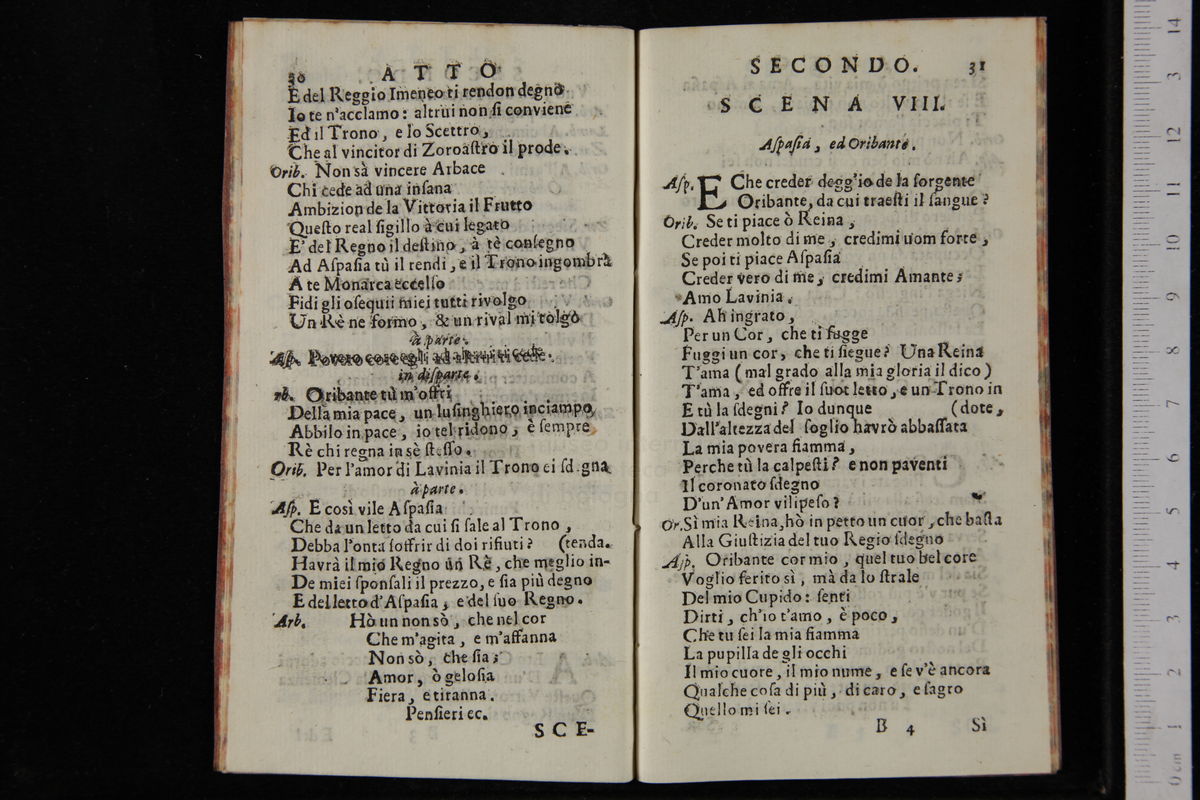 30 ATTO
E del Reggio Imeneo ti rendon degno
Io te n'acclamo: altrui non ſi conviene
Ed il Trono, e lo Scettro,
Che al vincitor di Zoroaſtro il prode.
Orib. Non sà vincere Arbace
Chi cede ad una inſana
Ambizion de la Vittoria il Frutto
Queſto real ſigillo à cui legato
E' del Regno il deſtino, à tè conſegno
Ad Aſpaſia tù il rendi, e il Trono ingombrà
A te Monarca eccelſo
Fidi gli oſequii miei tutti rivolgo
Un Rè ne formo, & un rival mi tolgo
à parte.
Aſp. Povero core
in diſparte.
rb. Oribante tù m'offri
Della mia pace, un luſinghiero inciampo,
Abbilo in pace, io tel ridono, è ſempre
Rè chi regna in sè ſteſſo.
Orib. Per l'amor di Lavinia il Trono ei ſd gna
à parte.
Aſp. E così vile Aſpaſia
Che da un letto da cui ſi ſale al Trono,
Debba l'onta ſoffrir di doi rifiuti? (tenda.
Havrà il mio Regno un Rè, che meglio in-
De miei ſponſali il prezzo, e ſia più degno
E del letto d'Aſpaſia, e del ſuo Regno.
Arb. Hò un non sò, che nel cor
Che m'agita, e m'affanna
Non sò, che ſia;
Amor, ò geloſia
Fiera, e tiranna.
Penſieri ec.
SCE-
SECONDO. 31
SCENA VIII.
Aſpaſia, ed Oribante.
Aſp. E Che creder degg'io de la ſorgente
Oribante, da cui traeſti il ſangue?
Orib. Se ti piace ò Reina,
Creder molto di me, credimi uom forte,
Se poi ti piace Aſpaſia
Creder vero di me, credimi Amante;
Amo Lavinia.
Aſp. Ah ingrato,
Per un Cor, che ti fugge
Fuggi un cor, che ti ſiegue? Una Reina
T'ama (mal grado alla mia gloria il dico)
T'ama, ed offre il ſuot letto, e un Trono in
E tù la ſdegni? Io dunque (dote,
Dall'altezza del ſoglio havrò abbaſſata
La mia povera fiamma,
Perche tù la calpeſti? e non paventi
Il coronato ſdegno
D'un' Amor vilipeſo?
Or. Sì mia Reina, hò in petto un cuor, che baſta
Alla Giuſtizia del tuo Regio ſdegno
Aſp. Oribante cor mio, quel tuo bel core
Voglio ferito sì, mà da lo ſtrale
Del mio Cupido: ſenti
Dirti, ch'io t'amo, è poco,
Che tu ſei la mia fiamma
La pupilla de gli occhi
Il mio cuore, il mio nume, e ſe v'è ancora
Qualche coſa di più, di caro, e ſagro
Quello mi ſei.
B 4 Sì